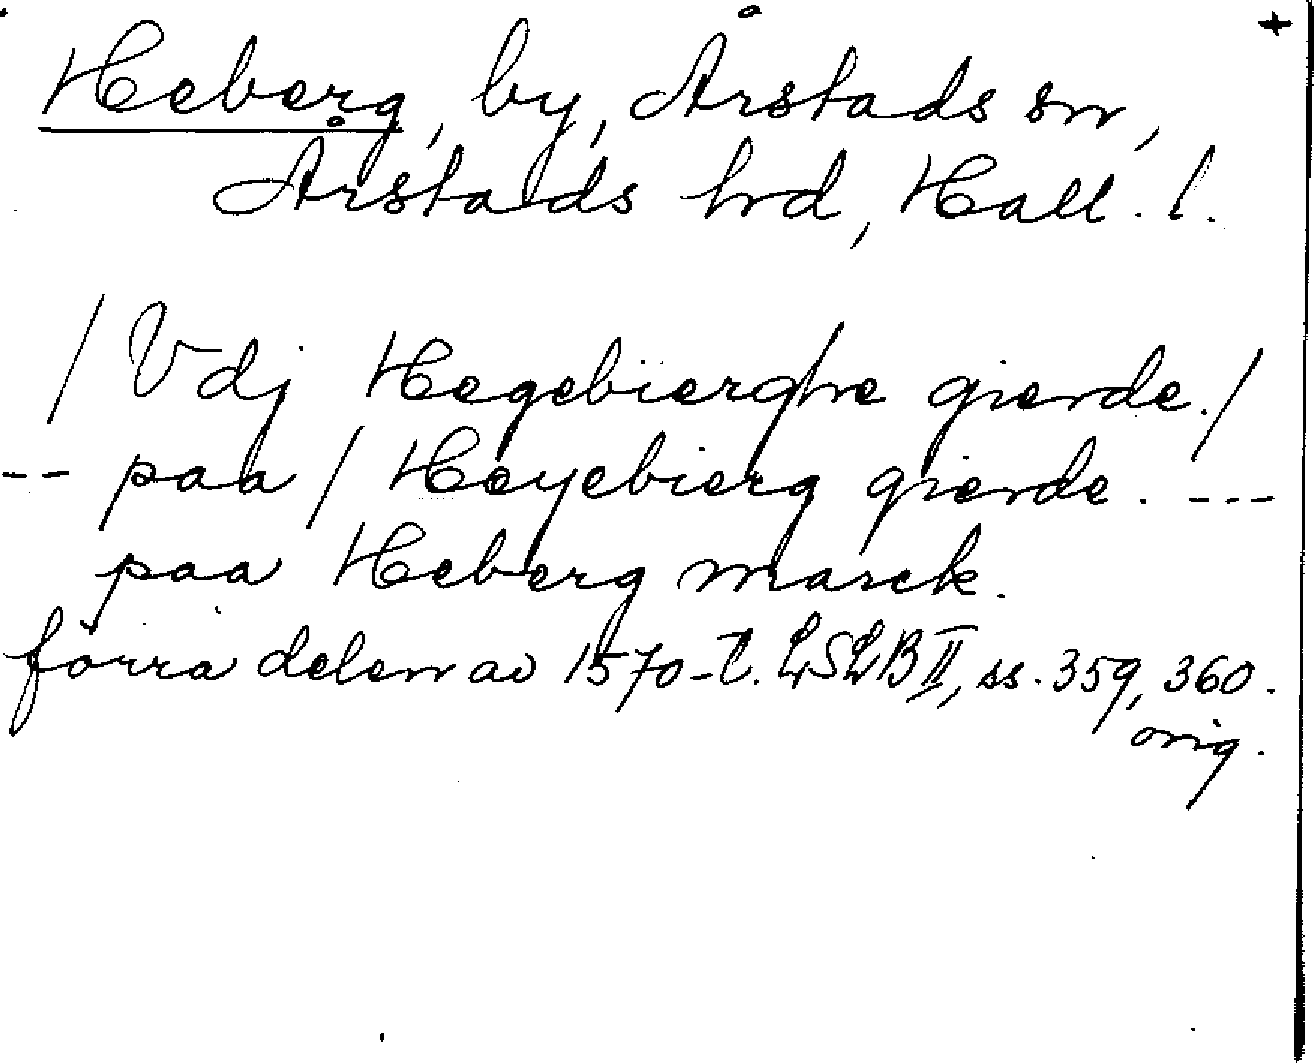 +
Heberg, by, Årstads sn,
Årstads hrd, Hall. l.
/ Vdj Hegebierghe gierde./
-- paa / Heyebierg gierde. ---
paa Heberg marck.
förra delen av 1570-t. LSLB II, ss. 359, 360.
orig.